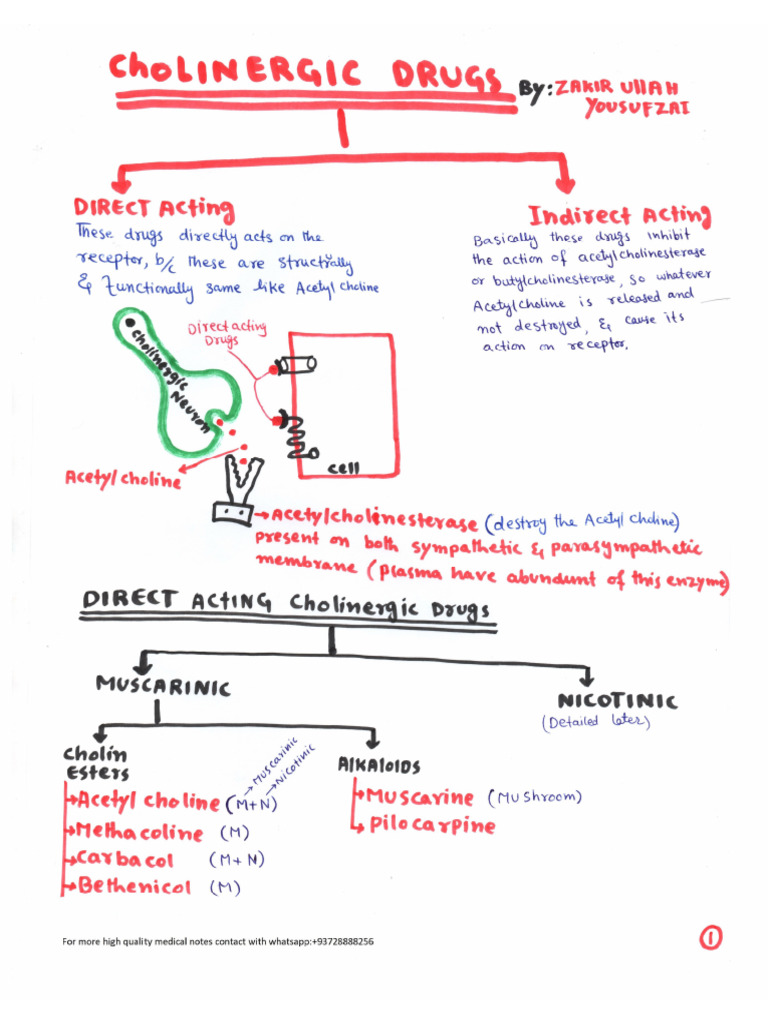 CHOLINERGIC DRUGS
By: ZAKIR UllAH
YOUSUFZAI
DIRECT Acting
These drugs directly acts on the
receptor, b/c these are structrally
& Functionally same like Acetyl choline
Indirect Acting
Basically these drugs inhibit
the action of acetylcholinesterase
or butylcholinesterase, so whatever
Acetylcholine is released and
not destroyed, & cause its
action on receptor.
Cholinergic
Neuron
Direct acting
Drugs
cell
Acetyl choline
Acetylcholinesterase (destroy the Acetyl Choline)
present on both sympathetic & parasympathetic
membrane (plasma have abundunt of this enzyme)
DIRECT ACTING Cholinergic Drugs
MUSCARINIC
NICOTINIC
(Detailed later)
Cholin
ESTERS
→Acetyl choline (M+N)
→Muscarinic
→Nicotinic
→Methacoline (M)
→Carbacol (M+N)
→Bethenicol (M)
AlKAloIDS
→Muscarine (MuShroom)
→Pilocarpine
For more high quality medical notes contact with whatsapp:+93728888256
1